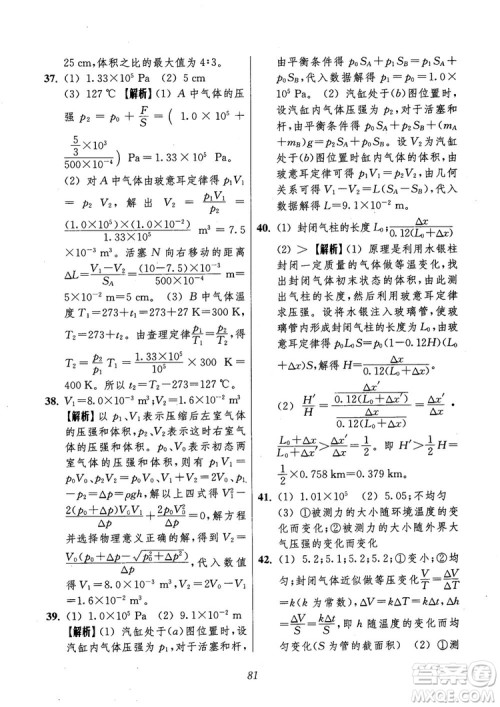 25 cm, 体积之比的最大值为 4∶3.
37. (1) 1.33×10⁵ Pa (2) 5 cm
(3) 127 ℃ 【解析】 (1) A 中气体的压
强 p₂ = p₀ + F/S = (1.0 × 10⁵ +
(5/3 × 10³)/(500×10⁻⁴)) Pa = 1.33×10⁵ Pa.
(2) 对 A 中气体由玻意耳定律得 p₁V₁
= p₂V₂, 得 V₂ = p₁V₁/p₂ =
(1.0×10⁵)×(10.0×10⁻³)/1.33×10⁵ m³ = 7.5
×10⁻³ m³. 活塞 N 向右移动的距离
ΔL = (V₁−V₂)/S = (10.0−7.5)×10⁻³/500×10⁻⁴ m =
5×10⁻² m = 5 cm. (3) B 中气体温
度 T₁ = 273+t₁ = (273+27) K = 300 K,
T₂ = 273+t₂, 由查理定律得 p₁/T₁ = p₂/T₂,
得 T₂ = p₂/p₁ T₁ = 1.33×10⁵/1×10⁵ × 300 K =
400 K. 所以 t₂ = T₂−273 = 127 ℃.
38. V₁=8.0×10⁻² m³ V₂=1.6×10⁻² m³
【解析】以 p₁、V₁ 表示压缩后左室气体
的压强和体积, p₂、V₂ 表示这时右室气
体的压强和体积. p₀、V₀ 表示初态两
室气体的压强和体积. 由玻意耳定律
得 p₁V₁ = p₀V₀, p₂V₂ = p₀V₀. 由题述
可知体积关系 V₁+V₂=2V₀, 两气体
压强关系 p₂−p₁=Δp=ρgh, 解以上
四式得 V₁² − 2(p₀+Δp)V₀/Δp V₁ +
2p₀V₀²/Δp = 0. 解方程
并选择物理意义正确的解得到 V₁ =
V₀(p₀+Δp−√(p₀²+Δp²))/Δp, 代入数值,
得 V₁=8.0×10⁻² m³, V₂=2V₀−V₁
=1.6×10⁻² m³.
39. (1) 1.0×10⁵ Pa (2) 9.1×10⁻² m
【解析】(1) 汽缸处于(a)图位置时, 设
汽缸内气体压强为 p₁, 对于活塞和杆,
由平衡条件得 p₀S_A + p₁S_B = p₁S_A +
p₀S_B, 代入数据得 p₁ = p₀ = 1.0×
10⁵ Pa. (2) 汽缸处于(b)图位置时,
设汽缸内气体压强为 p₂, 对于活塞和
杆, 由平衡条件得 p₀S_A + p₂S_B =
p₂S_A + p₀S_B + (m_A + m_B)g. 设 V₂ 为
汽缸处于(b)图位置时缸内气体体积,
由玻意耳定律可得 p₁V₁ = p₂V₂, 由几
何关系可得 V₁−V₂ = l(S_A − S_B), 由
以上各式解得 l = 9.1×10⁻² m.
40. (1) 封闭气柱的长度 L₀; Δx/0.12(L₀+Δx)
(2) > 【解析】(1) 原理是利用水银柱
封闭一定质量的气体做等温变化, 测
出气柱的长度, 利用玻意耳定律求气
压. 设将水银注入玻璃管后, 使玻璃管
水平放置, 测出气柱长度为 L₀, 使玻
璃管竖直, 测出空气柱减小 Δx, 根据
玻意耳定律得 p₀L₀S = (p₀ + 0.12H)
(L₀ − Δx)S, 解得 H = Δx/0.12(L₀+Δx).
(2) H′/H = (Δx/0.12(L₀+Δx′))/(Δx/0.12(L₀+Δx)) =
L₀+Δx/L₀+Δx′ > Δx/Δx′ = 1/2, 即实际高度大于
1/2 × 0.758 km=0.379 km.
41. (1) 1.01×10⁵ (2) 5.05; 不均匀
(3) ①被测力的大小随环境温度的变
化而变化 ②被测力的大小随外界大
气压强的变化而变化
42. (1) 5.2; 5.1; 5.2 (2) 变小; 不变
【解析】封闭气体做等压变化 V/T =
ΔV/ΔT = k(k 为常数), ΔV = kΔT = kΔt,
Δh = ΔV/S = k/S Δt (S 为管的截面积)
81